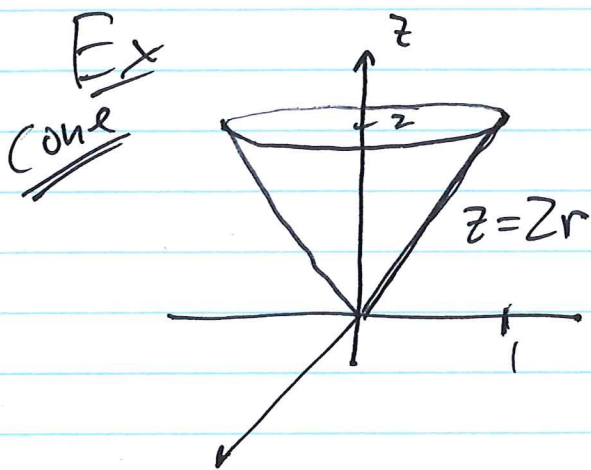 Ex
cone
z
2
z=2r
1